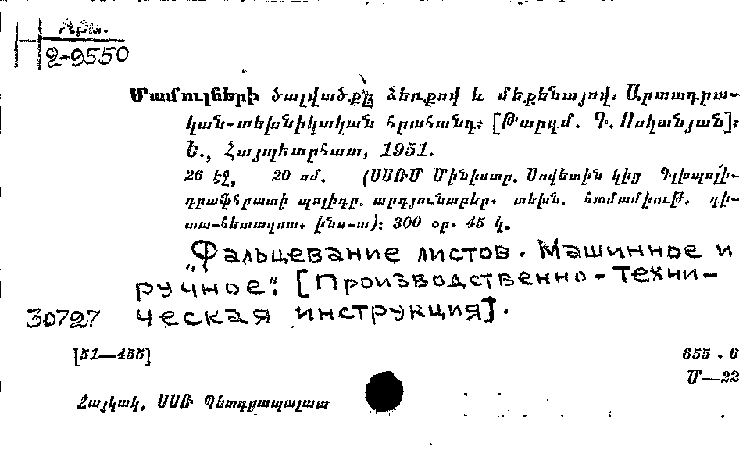 Арм.
2-9550
Մամուլների ծալվածքը ձեռքով և մեքենայով. Արտադրա-
կան-տեխնիկական հրահանգ: [Թարգմ. Գ. Ոսկանյան]:
Ե., Հայպետհրատ, 1951.
26 էջ, 20 սմ. (ՍՍՌՄ Մինիստր. Սովետին կից Գլխպոլի-
գրաֆհրատի պոլիգր. արդյունաբեր. տեխն. հումամիութ. գի-
տա-հետազոտ. ինս-տ): 300 օր. 45 կ.
„Фальцевание листов. Машинное и
ручное". [Производственно-техни-
30727 ческая инструкция].
[51—455] 655.6
Մ—22
Հայկակ. ՍՍՌ Պետգրապալատ